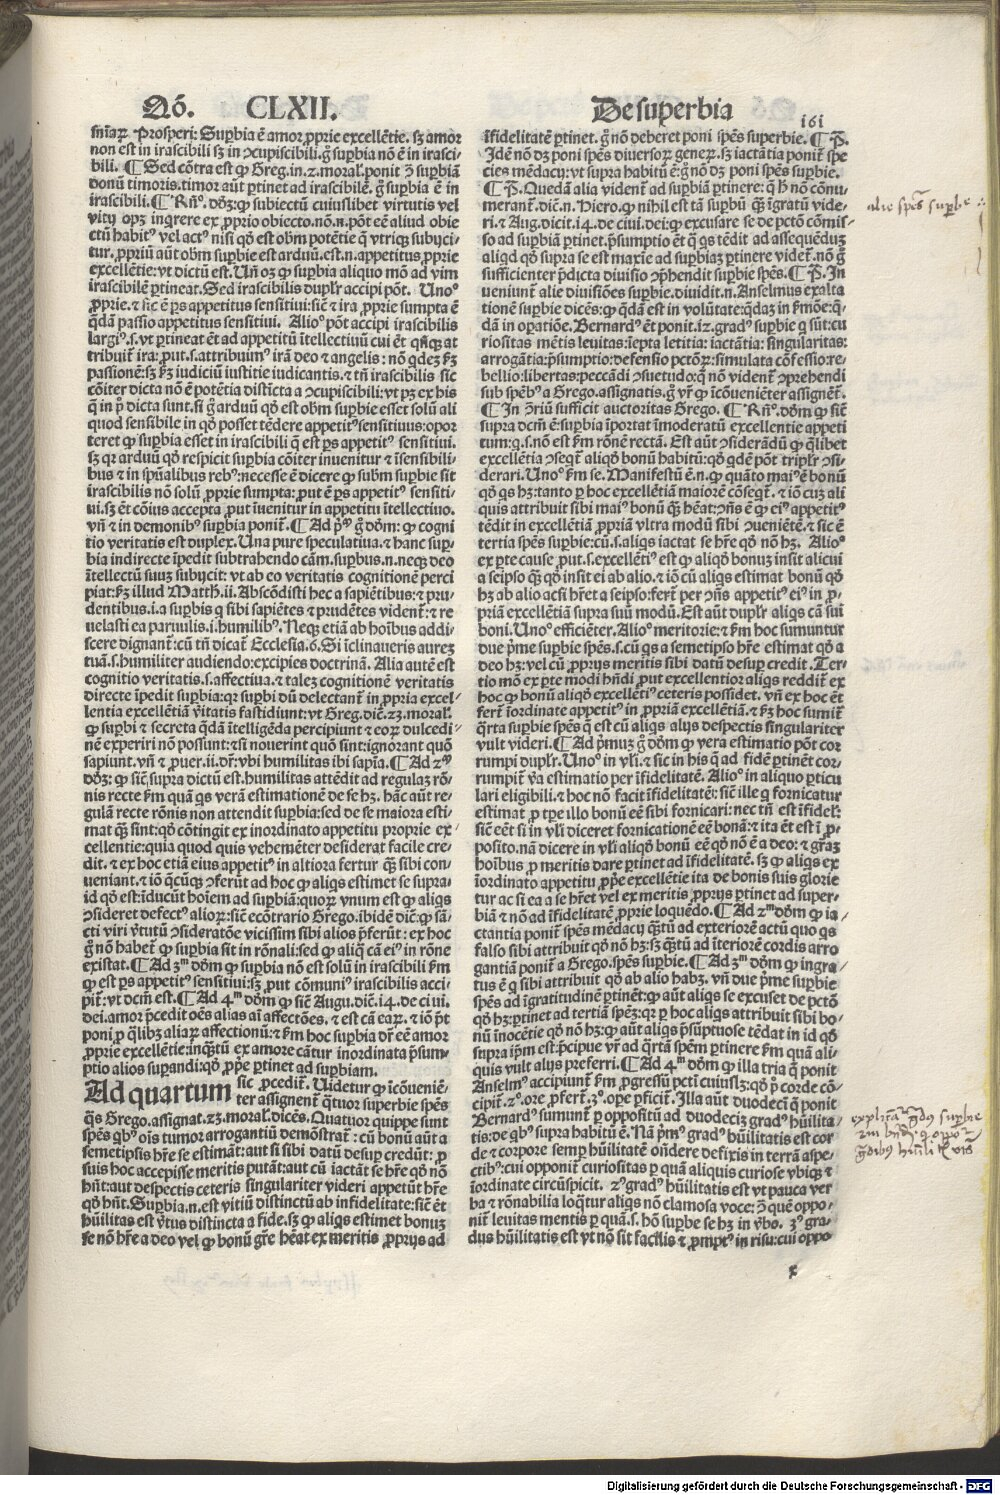 Qō. CLXII.
De superbia
161
sn̄iaꝝ Prosperi: Suꝑbia ē amor ꝓprie excellētie. sꝫ amor
non est in irascibili sꝫ in ꝯcupiscibili. ḡ suꝑbia nō ē in irasci-
bili. ¶ Sed cōtra est ꝙ Greg. in. 2. moral. ponit ꝯ suꝑbiā
donū timoris. timor aūt ꝑtinet ad irascibilē. ḡ suꝑbia ē in
irascibili. ¶ Rn̄⁹. dōꝫ: ꝙ subiectū cuiuslibet virtutis vel
vitij opꝫ inq̄rere ex ꝓprio obiecto. nō. n. pōt eē aliud obie
ctū habit⁹ vel act⁹ nisi qō est obm̄ potētie q̄ vtriqꝫ subijci-
tur. ꝓpriū aūt obm̄ suꝑbie est arduū. est. n. appetitus ꝓprie
excellētie: vt dictū est. Un̄ oꝫ ꝙ suꝑbia aliquo mō ad vim
irascibilē ꝑtineat. Sed irascibilis duplr̄ accipi pōt. Uno⁹
ꝓprie. ⁊ sic ē ꝑs appetitus sensitiui: sic̄ ⁊ ira ꝓprie sumpta ē
q̄dā passio appetitus sensitiui. Alio⁹ pōt accipi irascibilis
largi⁹. s. vt ꝑtineat ēt ad appetitū ītellectiuū cui ēt qn̄qꝫ at
tribuit̄ ira: ꝓut. s. attribuim⁹ irā deo ⁊ angelis: nō q̄dez ẜꝫ
passionē: sꝫ ẜꝫ iudiciū iustitie iudicantis. ⁊ tn̄ irascibilis sic
cōiter dicta nō ē potētia distīcta a ꝯcupiscibili: vt pꝫ ex his
q̄ in p̄ dicta sunt. si ḡ arduū qō est obm̄ suꝑbie esset solū ali
quod sensibile in qō posset tēdere appetit⁹ sensitiuus: opor
teret ꝙ suꝑbia esset in irascibili q̄ est ꝑs appetit⁹ sensitiui.
sꝫ qꝛ arduū qō respicit suꝑbia cōiter inuenitur ⁊ īsensibili-
bus ⁊ in spūalibus reb⁹: necesse ē dicere ꝙ subm̄ suꝑbie sit
irascibilis nō solū ꝓprie sumpta: ꝓut ē ꝑs appetit⁹ sensiti-
ui. sꝫ ēt cōius accepta ꝓut īuenitur in appetitu ītellectiuo.
vn̄ ⁊ in demonib⁹ suꝑbia ponit̄. ¶ Ad p̄⁹ ḡ dōm: ꝙ cogni
tio veritatis est duplex. Una pure speculatiua. ⁊ hanc suꝑ-
bia indirecte īpedit subtrahendo cām. suꝑbus. n. neqꝫ deo
ītellectū suuꝫ subijcit: vt ab eo veritatis cognitionē perci
piat: ẜꝫ illud Matth. ii. Abscōdisti hec a sapiētibus: ⁊ pru-
dentibus. i. a suꝑbis q̄ sibi sapiētes ⁊ prudētes vident̄: ⁊ re
uelasti ea paruulis. i. humilib⁹. Neqꝫ etiā ab hoībus addi-
scere dignant̄: cū tn̄ dicat̄ Ecclesia. 6. Si īclinaueris aureꝫ
tuā. s. humiliter audiendo: excipies doctrinā. Alia autē est
cognitio veritatis. s. affectiua. ⁊ taleꝫ cognitionē veritatis
directe īpedit suꝑbia: qꝛ suꝑbi dū delectant̄ in ꝓpria excel-
lentia excellētiā v̄itatis fastidiunt: vt Greg. dic̄. 23. moral.
ꝙ suꝑbi ⁊ secreta q̄dā ītelligēda percipiunt ⁊ eoꝝ dulcedi-
nē experiri nō possunt: ⁊ si nouerint quō sint: ignorant quō
sapiunt. vn̄ ⁊ ꝓuer. ii. dr̄: vbi humilitas ibi sapīa. ¶ Ad 2⁹
dōꝫ: ꝙ sic̄ supra dictū est. humilitas attēdit ad regulaꝫ rō-
nis recte ẜm quā q̄s verā estimationē de se hꝫ. hāc aūt re-
gulā recte rōnis non attendit suꝑbia: sed de se maiora esti-
mat qꝫ sint: qō cōtingit ex inordinato appetitu proprie ex-
cellentie: quia quod quis vehemēter desiderat facile cre-
dit. ⁊ ex hoc etiā eius appetit⁹ in altiora fertur qꝫ sibi con-
ueniant. ⁊ iō q̄cūqꝫ ꝯferūt ad hoc ꝙ aliq̄s estimet se supra-
id qō est: īducūt hoīem ad suꝑbiā: quoꝝ vnum est ꝙ aliq̄s
ꝯsideret defect⁹ alioꝝ: sic̄ ecōtrario Grego. ibidē dic̄: ꝙ sā-
cti viri v̄tutū ꝯsideratōe vicissim sibi alios p̄ferūt: ex hoc
ḡ nō habet̄ ꝙ suꝑbia sit in rōnali: sed ꝙ aliq̄ cā ei⁹ in rōne
existat. ¶ Ad 3ᵐ dōm ꝙ suꝑbia nō est solū in irascibili ẜm
ꝙ est ꝑs appetit⁹ sensitiui: sꝫ ꝓut cōmuni⁹ irascibilis acci-
pit̄: vt dcm̄ est. ¶ Ad 4ᵐ dōm ꝙ sic̄ Augu. dic̄. i4. de ci ui.
dei. amor p̄cedit oēs alias aī affectōes. ⁊ est cā eaꝝ. ⁊ iō p̄t
poni ꝓ q̄libꝫ aliaꝝ affectionū: ⁊ ẜm hoc suꝑbia dr̄ eē amor
ꝓprie excellētie: inqꝫtū ex amore cātur inordinata p̄sum-
ptio alios superandi: qō ꝓp̄e ꝑtinet ad suꝑbiam.
Ad quartum sic ꝓcedit̄. Uidetur ꝙ īcōueniē-
ter assignent̄ q̄tuor superbie spēs
q̄s Grego. assignat. 23. moral. dicēs. Quatuor quippe sunt
spēs qb⁹ oīs tumor arrogantiū demōstrat̄: cū bonū aūt a
semetipsis hr̄e se estimāt: aut si sibi datū desuꝑ credūt: ꝓ
suis hoc accepisse meritis putāt: aut cū iactāt se hr̄e qō nō
hn̄t: aut despectis ceteris singulariter videri appetūt hr̄e
qō hn̄t. Suꝑbia. n. est vitiū distinctū ab infidelitate: sic̄ ēt
hūilitas est v̄tus distincta a fide. sꝫ ꝙ aliq̄s estimet bonuꝫ
se nō hr̄e a deo vel ꝙ bonū grē heat ex meritis ꝓprijs ad
īfidelitatē ꝑtinet. ḡ nō deberet poni spēs superbie. ¶ P̄.
Idē nō dꝫ poni spēs diuersoꝝ geneꝝ. sꝫ iactātia ponit̄ spe
cies mēdacij: vt supra habitū ē: ḡ nō dꝫ poni spēs suꝑbie.
¶ P̄. Quedā alia vident̄ ad suꝑbiā ꝑtinere: q̄ h̄ nō cōnu
merant̄. dic̄. n. Hiero. ꝙ nihil est tā suꝑbū qꝫ īgratū vide-
ri. ⁊ Aug. dicit. i4. de ciui. dei: ꝙ excusare se de pctō cōmis-
so ad suꝑbiā ꝑtinet. p̄sumptio ēt q̄ q̄s tēdit ad assequēduꝫ
aliqd qō supra se est maxīe ad suꝑbiaꝫ ꝑtinere videt̄. nō ḡ
sufficienter p̄dicta diuisio ꝯp̄hendit suꝑbie spēs. ¶ P̄. In
ueniunt̄ alie diuisiōes suꝑbie. diuidit. n. Anselmus exalta
tionē suꝑbie dicēs: ꝙ q̄dā est in volūtate: q̄daꝫ in ẜmōe: q̄-
dā in oꝑatiōe. Bernard⁹ ēt ponit. i2. grad⁹ suꝑbie q̄ sūt: cu
riositas mētis leuitas: īepta letitia: iactātia: singularitas:
arrogātia: p̄sumptio: defensio pctōꝝ: simulata cōfessio: re-
bellio: libertas: peccādi ꝯsuetudo: q̄ nō vident̄ ꝯprehendi
sub spēb⁹ a Grego. assignatis. ḡ vr̄ ꝙ īcōueniēter assignēt̄.
¶ In ꝯriū sufficit auctoritas Grego. ¶ Rn̄⁹. dōm ꝙ sic̄
supra dcm̄ ē: suꝑbia īportat īmoderatū excellentie appeti
tum: q. s. nō est ẜm rōnē rectā. Est aūt ꝯsiderādū ꝙ q̄libet
excellētia ꝯseqt̄ aliqō bonū habitū: qō qdē pōt triplr̄ ꝯsi-
derari. Uno⁹ ẜm se. Manifestū ē. n. ꝙ quāto mai⁹ ē bonū
qō q̄s hꝫ: tanto ꝑ hoc excellētiā maiorē cōseqt̄. ⁊ iō cuꝫ ali
quis attribuit sibi mai⁹ bonū qꝫ hēat: ꝯn̄s ē ꝙ ei⁹ appetit⁹
tēdit in excellētiā ꝓpriā vltra modū sibi ꝯueniētē. ⁊ sic ē
tertia spēs suꝑbie: cū. s. aliq̄s iactat se hr̄e qō nō hꝫ. Alio⁹
ex ꝑte cause ꝓut. s. excellēti⁹ est ꝙ aliqō bonuꝫ insit alicui
a seipso qꝫ qō insit ei ab alio. ⁊ iō cū aliq̄s estimat bonū qō
hꝫ ab alio acsi hr̄et a seipso: fert̄ per ꝯn̄s appetit⁹ ei⁹ in ꝓ-
priā excellētiā supra suū modū. Est aūt duplr̄ aliq̄s cā sui
boni. Uno⁹ efficiēter. Alio⁹ meritorie: ⁊ ẜm hoc sumuntur
due p̄me suꝑbie spēs. s. cū q̄s a semetipso hr̄e estimat qō a
deo hꝫ: vel cū ꝓprijs meritis sibi datū desuꝑ credit. Ter-
tio mō ex ꝑte modi hn̄di ꝓut excellentior aliq̄s reddit̄ ex
hoc ꝙ bonū aliqō excellēti⁹ ceteris possidet. vn̄ ex hoc ēt
fert̄ īordinate appetit⁹ in ꝓpriā excellētiā. ⁊ ẜꝫ hoc sumit̄
q̄rta suꝑbie spēs q̄ est cū aliq̄s alijs despectis singulariter
vult videri. ¶ Ad p̄muꝫ ḡ dōm ꝙ vera estimatio pōt cor
rumpi duplr̄. Uno⁹ in vl̄i. ⁊ sic in his q̄ ad fidē ꝑtinēt cor-
rumpit̄ v̄a estimatio per īfidelitatē. Alio⁹ in aliquo ꝑticu
lari eligibili. ⁊ hoc nō facit īfidelitatē: sic̄ ille q̄ fornicatur
estimat ꝓ tꝑe illo bonū eē sibi fornicari: nec tn̄ est īfidel̄:
sic̄ eēt si in vl̄i diceret fornicationē eē bonā: ⁊ ita ēt est ī ꝓ-
posito. nā dicere in vl̄i aliqō bonū eē qō nō ē a deo: ⁊ gr̄aꝫ
hoībus ꝓ meritis dare ꝑtinet ad īfidelitatē. sꝫ ꝙ aliq̄s ex
īordinato appetitu ꝓp̄e excellētie ita de bonis suis glorie
tur ac si ea a se hr̄et vel ex meritis ꝓprijs ꝑtinet ad super-
biā ⁊ nō ad īfidelitatē ꝓprie loquēdo. ¶ Ad 2ᵐ dōm ꝙ ia-
ctantia ponit̄ spēs mēdacij qꝫtū ad exteriorē actū quo q̄s
falso sibi attribuit qō nō hꝫ: sꝫ qꝫtū ad īteriorē cordis arro
gantiā ponit̄ a Grego. spēs suꝑbie. ¶ Ad 3ᵐ dōm ꝙ ingra-
tus ē q̄ sibi attribuit qō ab alio habꝫ. vn̄ due p̄me suꝑbie
spēs ad īgratitudinē ꝑtinēt: ꝙ aūt aliq̄s se excuset de pctō
qō hꝫ: ꝑtinet ad tertiā spēꝫ: qꝛ ꝑ hoc aliq̄s attribuit sibi bo-
nū īnocētie qō nō hꝫ: ꝙ aūt aliq̄s p̄sūptuose tēdat in id qō
supra ip̄m est: p̄cipue vr̄ ad q̄rtā spēm ꝑtinere ẜm quā ali-
quis vult alijs preferri. ¶ Ad 4ᵐ dōm ꝙ illa tria q̄ ponit
Anselm⁹ accipiunt̄ ẜm ꝓgressū pcti cuiuslꝫ: qō p̄ corde cō-
cipit̄. 2⁹. ore ꝓfert̄. 3⁹. oꝑe ꝑficit̄. Illa aūt duodeci q̄ ponit
Bernard⁹ sumunt̄ ꝑ oppositū ad duodeciꝫ grad⁹ hūilita-
tis: de qb⁹ supra habitū ē. Nā p̄m⁹ grad⁹ hūilitatis est cor
de ⁊ corpore semꝑ hūilitatē on̄dere defixis in terrā aspe-
ctib⁹: cui opponit̄ curiositas ꝑ quā aliquis curiose vbiqꝫ ⁊
īordinate circūspicit. 2⁹ grad⁹ hūilitatis est vt pauca ver
ba ⁊ rōnabilia loqtur aliq̄s nō clamosa voce: ꝯ quē oppo-
nit̄ leuitas mentis ꝑ quā. s. hō suꝑbe se hꝫ in v̄bo. 3⁹ gra-
dus hūilitatis est vt nō sit facilis ⁊ ꝓmpt⁹ in risu: cui oppo
x
alie spēs suꝑbie
Digitalisierung gefördert durch die Deutsche Forschungsgemeinschaft - DFG